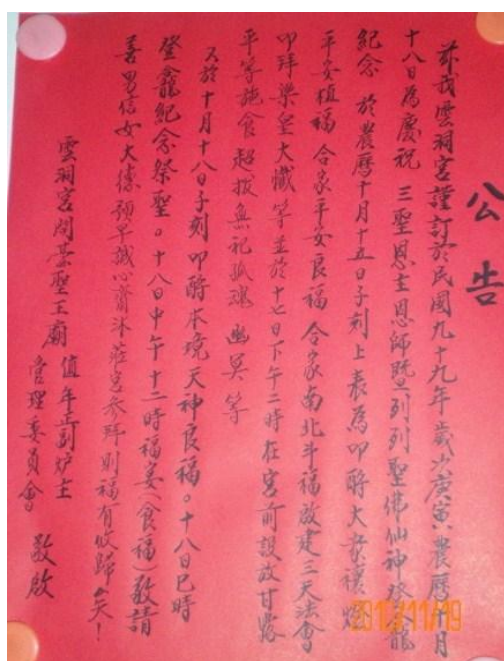 公告
茲我雲祠宮謹訂於民國九十九年歲次庚寅農曆十月
十八日為慶祝 三聖恩主恩師暨列列聖佛仙神登龕
紀念 於農曆十月十五日子刻上表為叩酧大眾禳
平安植福 合家平安良福 合家南北斗福放建三天法會
叩拜梁皇大懺等並於十七日下午二時在宮前設放甘露
平等施食 超拔無祀孤魂 幽冥等
又於十月十八日子刻叩酧本境天神良福。十八日巳時
登龕紀念祭聖。十八日中午十二時福宴(食福)敬請
善男信女大德預早誠心齋沐莊容參拜則福有攸歸矣!
雲祠宮開臺聖王廟 值年正副炉主
管理委員會 敬啟
2010/11/19